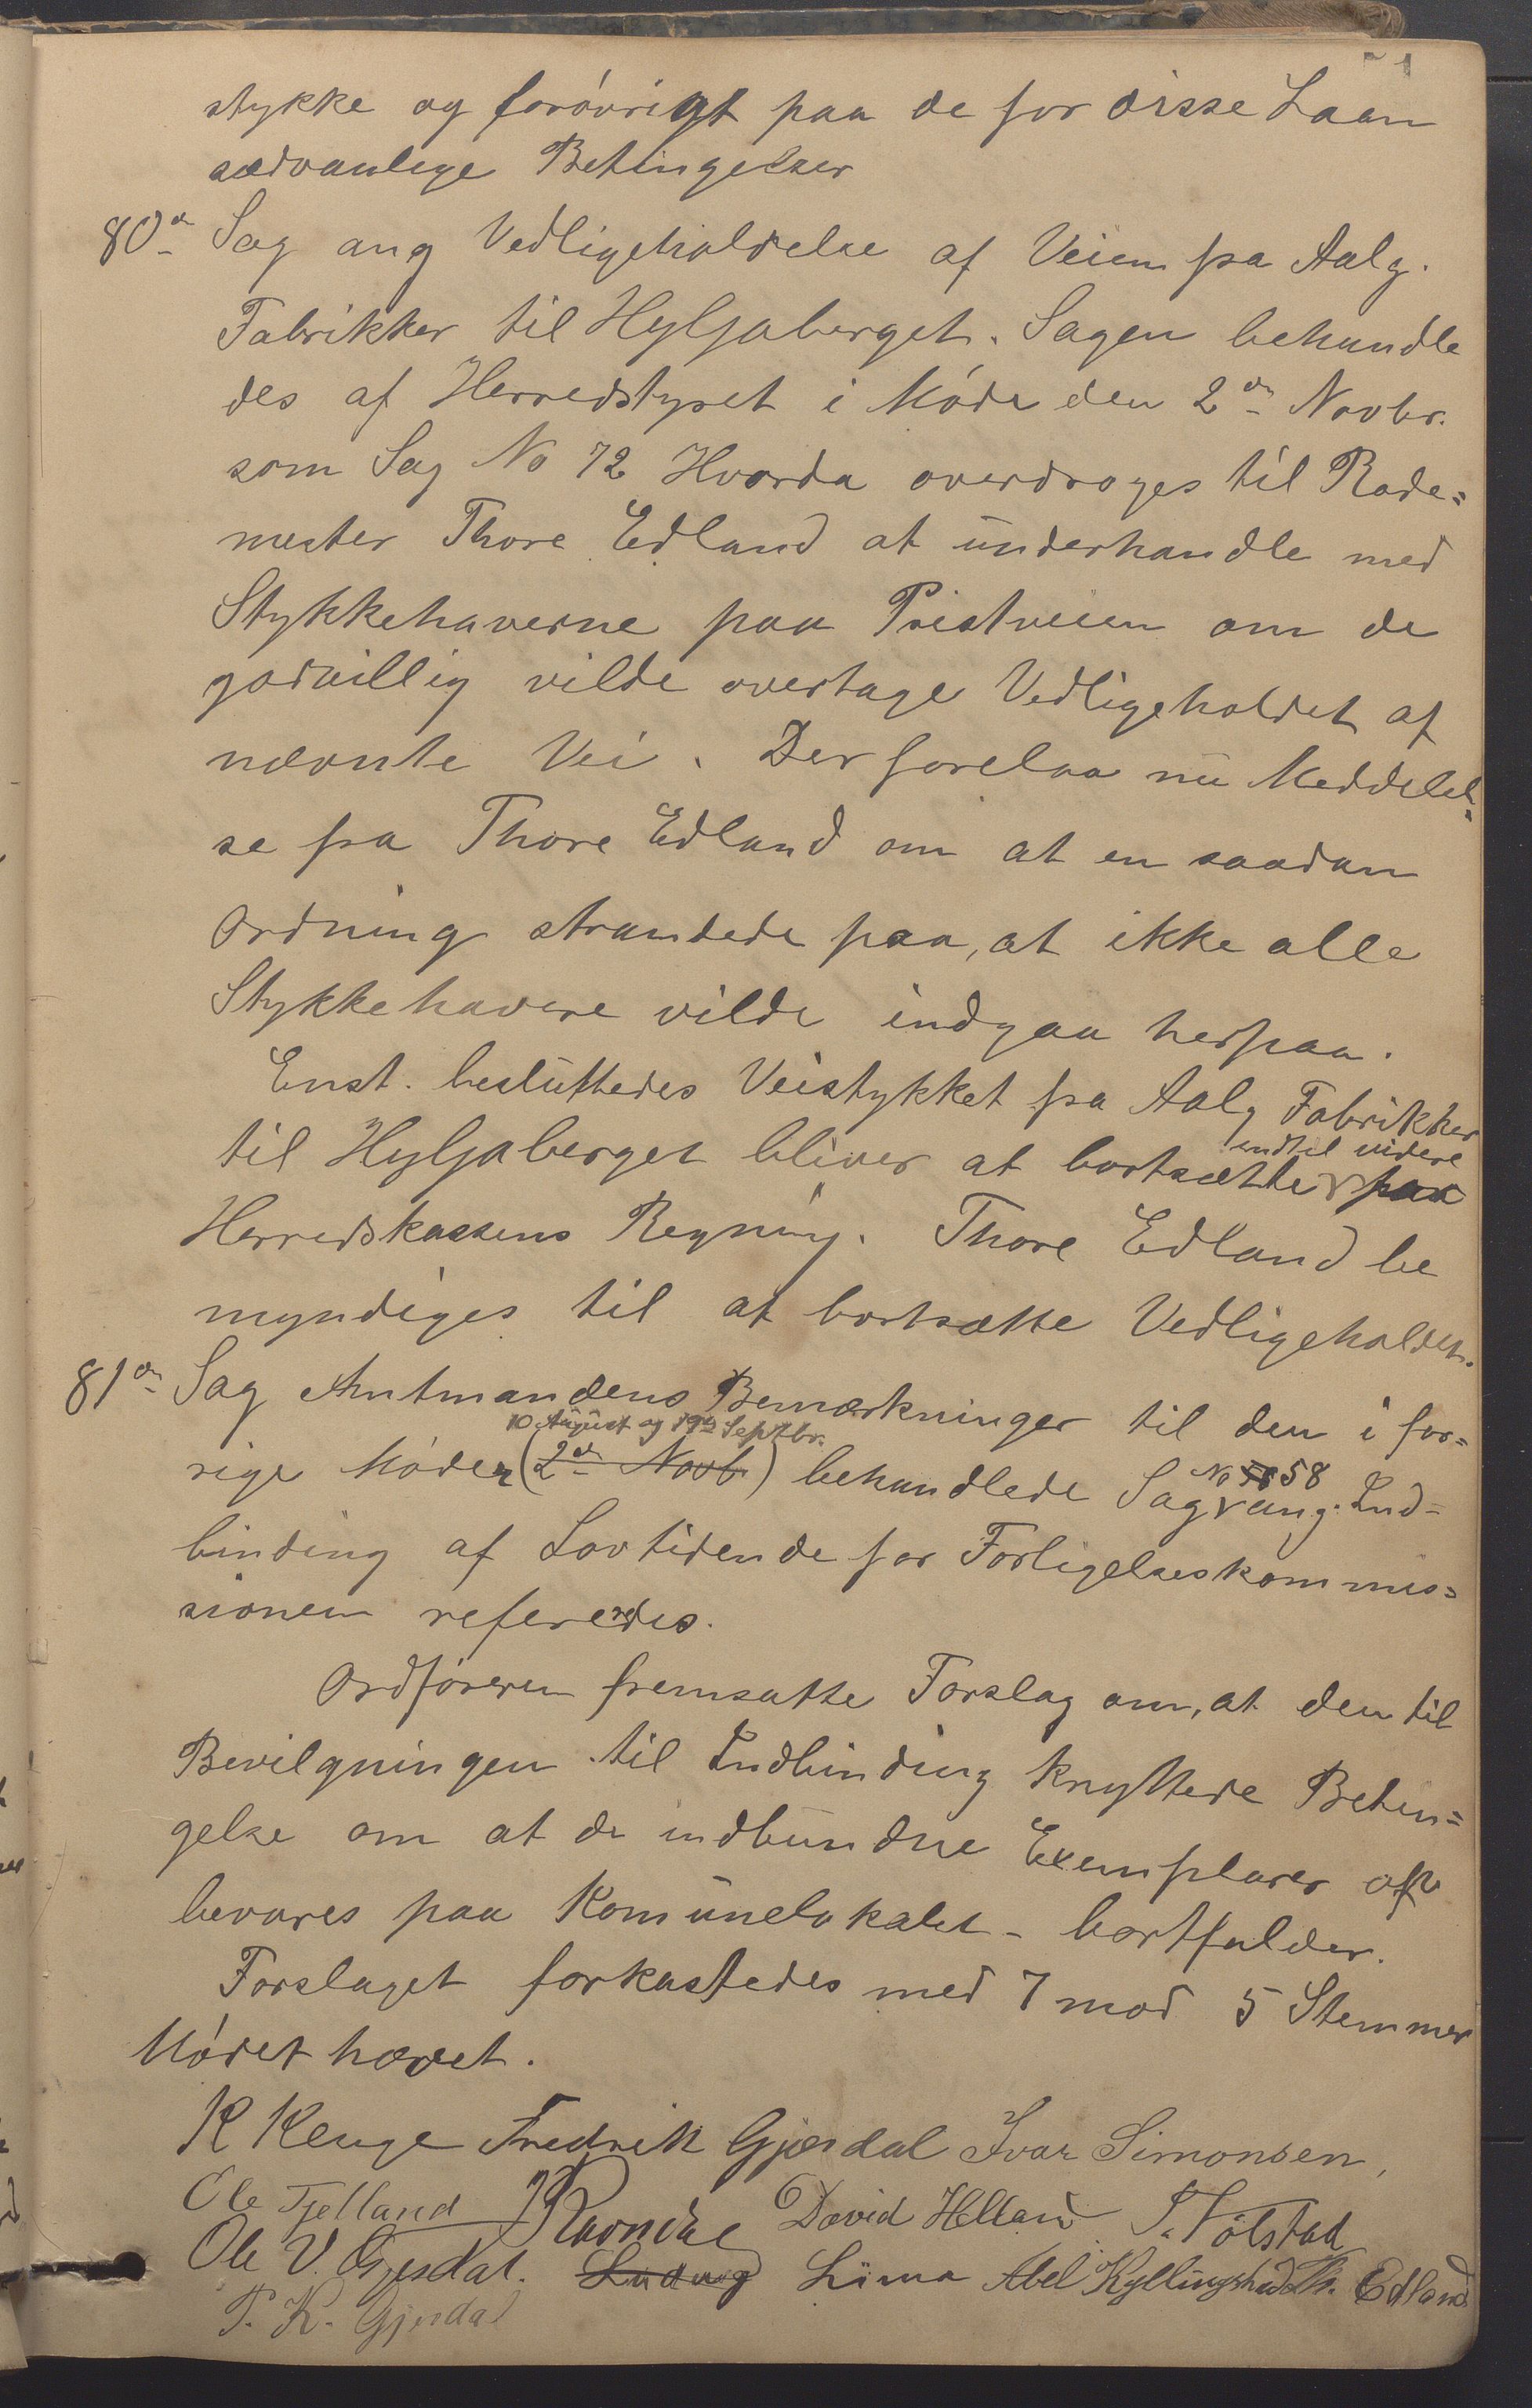 stykke og forøvrigt paa de for disse Laan
sædvanlige Betingelser
80de Sag ang Vedligeholdelse af Veien fra Aalg.
Fabrikker til Hyljaberget. Sagen behandle
des af Herredstyret i Møde den 2den Novbr.
som Sag No 72 Hvorda overdroges til Rode=
mester Thore Edland at underhandle med
Stykkehaverne paa Pristveien om de
godvillig vilde overtage Vedligeholdet af
nævnte Vei. Der forelaa nu Meddelel=
se fra Thore Edland om at en saadan
Ordning strandede paa, at ikke alle
Stykkehavere vilde indgaa herpaa.
Enst. besluttedes Veistykket fra Aalg Fabrikker
til Hyljaberget bliver at bortsætte indtil videre paa
Herredskassens Regning. Thore Edland be
myndiges til at bortsætte Vedligeholdet.
81de Sag Amtmandens Bemærkninger til den i for=
10 August og 19de Septbr.
rige Møder (2den Novb) behandlede Sag No 58 ang. Ind=
binding af Lovtidende for Forligelseskommis=
sionen refereredes.
Ordføreren fremsatte Forslag om, at den til
Bevilgningen til Indbinding knyttede Betin=
gelse om at de indbundne Exemplarer op
bevares paa Komunelokalet - bortfalder.
Forslaget forkastedes med 7 mod 5 Stemmer
Mødet hævet.
K Kluge Fredrik Gjesdal Ivar Simonsen,
Ole Fjelland Ravndal David Helland T. Nølstad
Ole V. Gjesdal. Ludvig Lima Abel Kyllingstad Th. Edland
T. K. Gjesdal